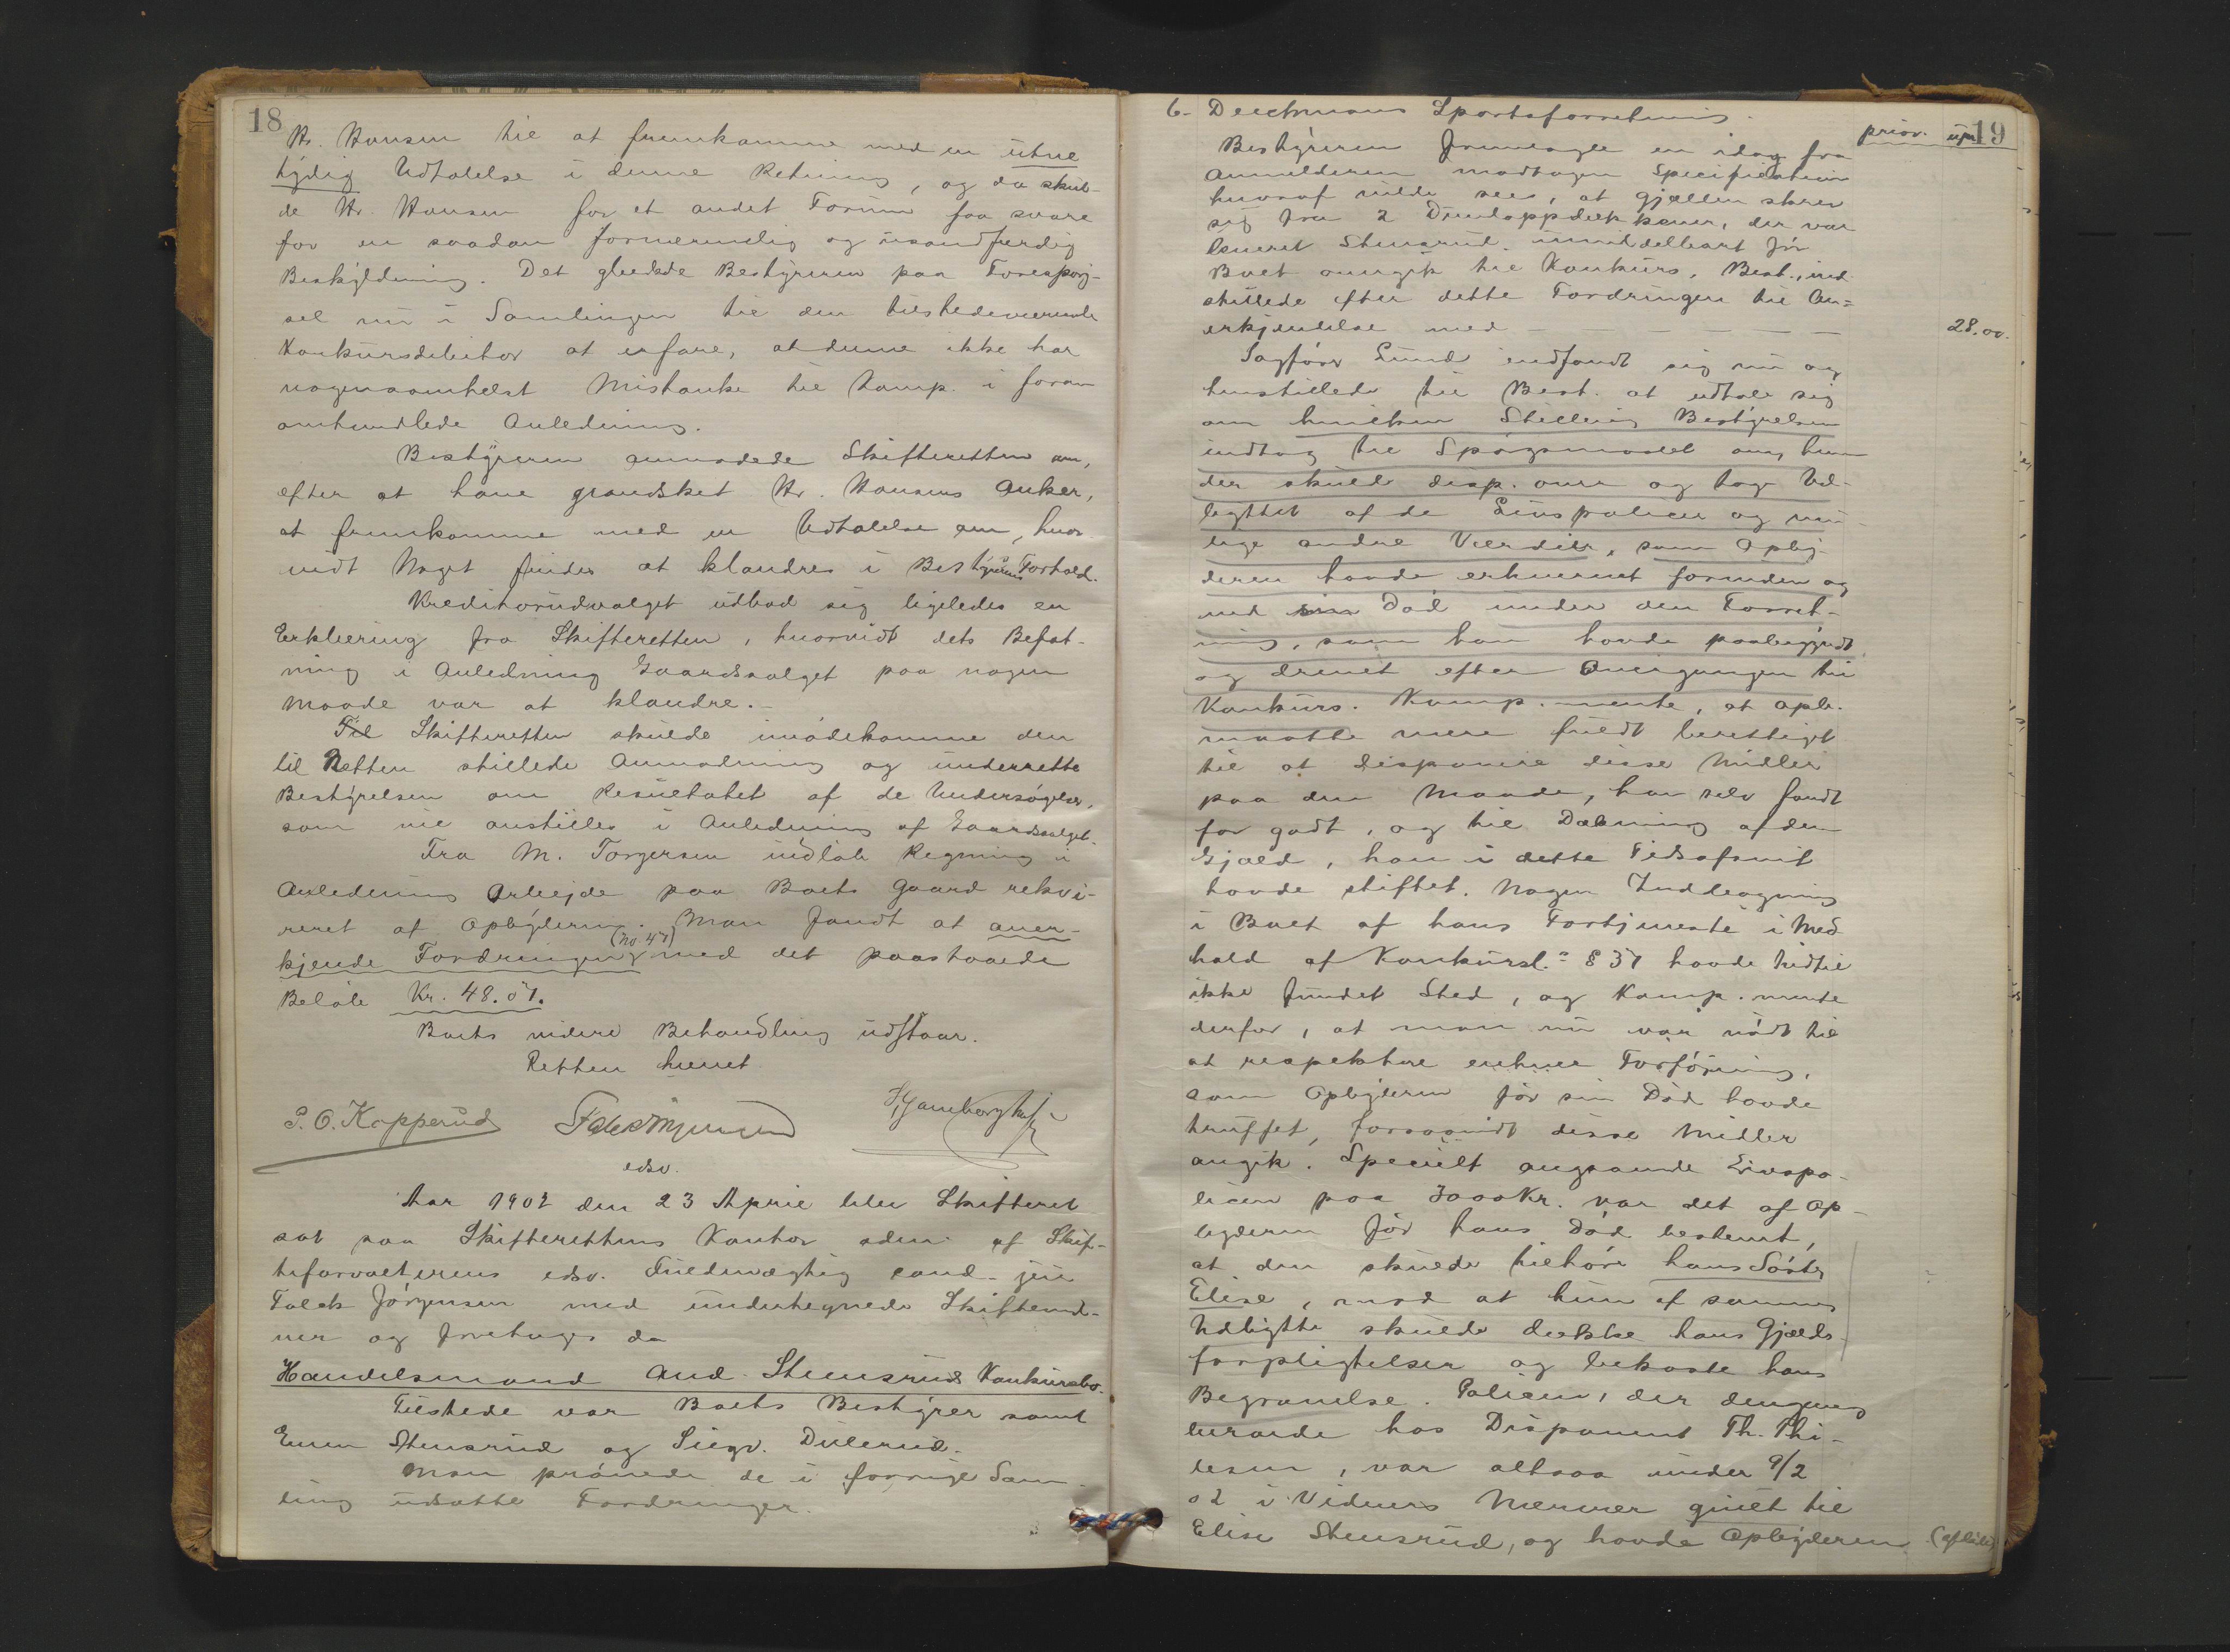 18
Hr. Hansen til at fremkomme med en utve
tydig Udtalelse i denne Retning, og da skul-
de Hr. Hansen for et andet Forum faa svare
for en saadan fornærmelig og usandfærdig
Beskyldning. Det glædede Bestyreren paa Forespørg-
sel nu i Samlingen til den tilstedeværende
Konkursdebitor at erfare, at denne ikke har
nogensomhelst Mistanke til Komp. i foran
omhandlede Anledning.
Bestyreren anmodede Skifteretten om,
efter at have grandsket Hr. Hansens Anker,
at fremkomme med en Udtalelse om, hvor-
vidt Noget findes at klandres i Bestyrerens Forhold.
Kreditorudvalget udbad sig ligeledes en
Erklæring fra Skifteretten, hvorvidt dets Befat-
ning i Anledning Gaardsalget paa nogen
Maade var at klandre.-
Til Skifteretten skulde imødekomme den
til Retten stillede Anmodning og underrette
Bestyrelsen om Resultatet af de Undersøgelser,
som vil anstilles i Anledning af Gaardsalget.
Fra M. Torgersen indløb Regning i
Anledning Arbejde paa Boets Gaard rekvi-
reret af Opbyderen. Man fandt at aner-
kjende Fordringen (no 47) med det paastaaede
Beløb Kr. 48.07.
Boets videre Behandling udstaar.
Retten hævet
P. O. Kopperud Falck Jørgensen
edsv.
Aar 1902 den 23 April blev Skifteret
sat paa Skifterettens Kontor adm. af Skif-
teforvalterens edsv. Fuldmægtig cand. jur
Falck Jørgensen med undertegnede Skiftevid-
ner og foretoges da
Handelsmand And. Stensruds Konkursbo.
Tilstede var Boets Bestyrer samt
Even Stensrud og Sigv. Dulerud.
Man prøvede de i forrige Sam-
ling udsatte Fordringer.
19
prior. upr
6. Deichmans Sportsforretning.
Bestyreren fremlagde en idag fra
Anmelderen modtagen Specifikation
hvoraf vilde sees, at Gjælden skrev
sig fra 2 Dunloppdækkener, der var
leveret Stensrud umiddelbart før
Boet overgik til Konkurs. Best. ind-
stillede efter dette Fordringen til An=
erkjendelse med — — — — — 28.00.
Sagfører Lund indfandt sig nu og
henstillede til Best. at udtale sig
om hvilken Stilling Bestyrelsen
indtog til Spørgsmaalet om, hvem
der skulde disp. over og tage Ud-
byttet af de Livspolicer og mu-
lige andre Værdier, som Opby-
deren havde erhvervet forinden og
ved sin Død under den Forret-
ning, som han havde paabegyndt
og drevet efter Overgangen til
Konkurs. Komp. mente, at Opb.
maatte være fuldt berettiget
til at disponere disse Midler
paa den Maade, han selv fandt
for godt, og til Dækning af den
Gjæld, han i dette Tidsafsnit
havde stiftet. Nogen Inddragning
i Boet af hans Fortjeneste i Med-
hold af Konkursl.s § 37 havde hidtil
ikke fundet Sted, og Komp. mente
derfor, at man nu var nødt til
at respektere enhver Forføining,
som Opbyderen før sin Død havde
truffet, forsaavidt disse Midler
angik. Specielt angaaende Livspo-
licen paa 3000 Kr. var det af Op-
byderen før hans Død bestemt,
at den skulde tilhøre hans Søster
Elise, mod at hun af sammes
Udbytte skulde dække hans Gjælds-
forpligtelser og bekoste hans
Begravelse. Policen, der dengang
beroede hos Disponent Th. Thi-
lesen, var altsaa under 9/2
02 i Vidners Nærvær givet til
Elise Stensrud, og havde Opbyderen